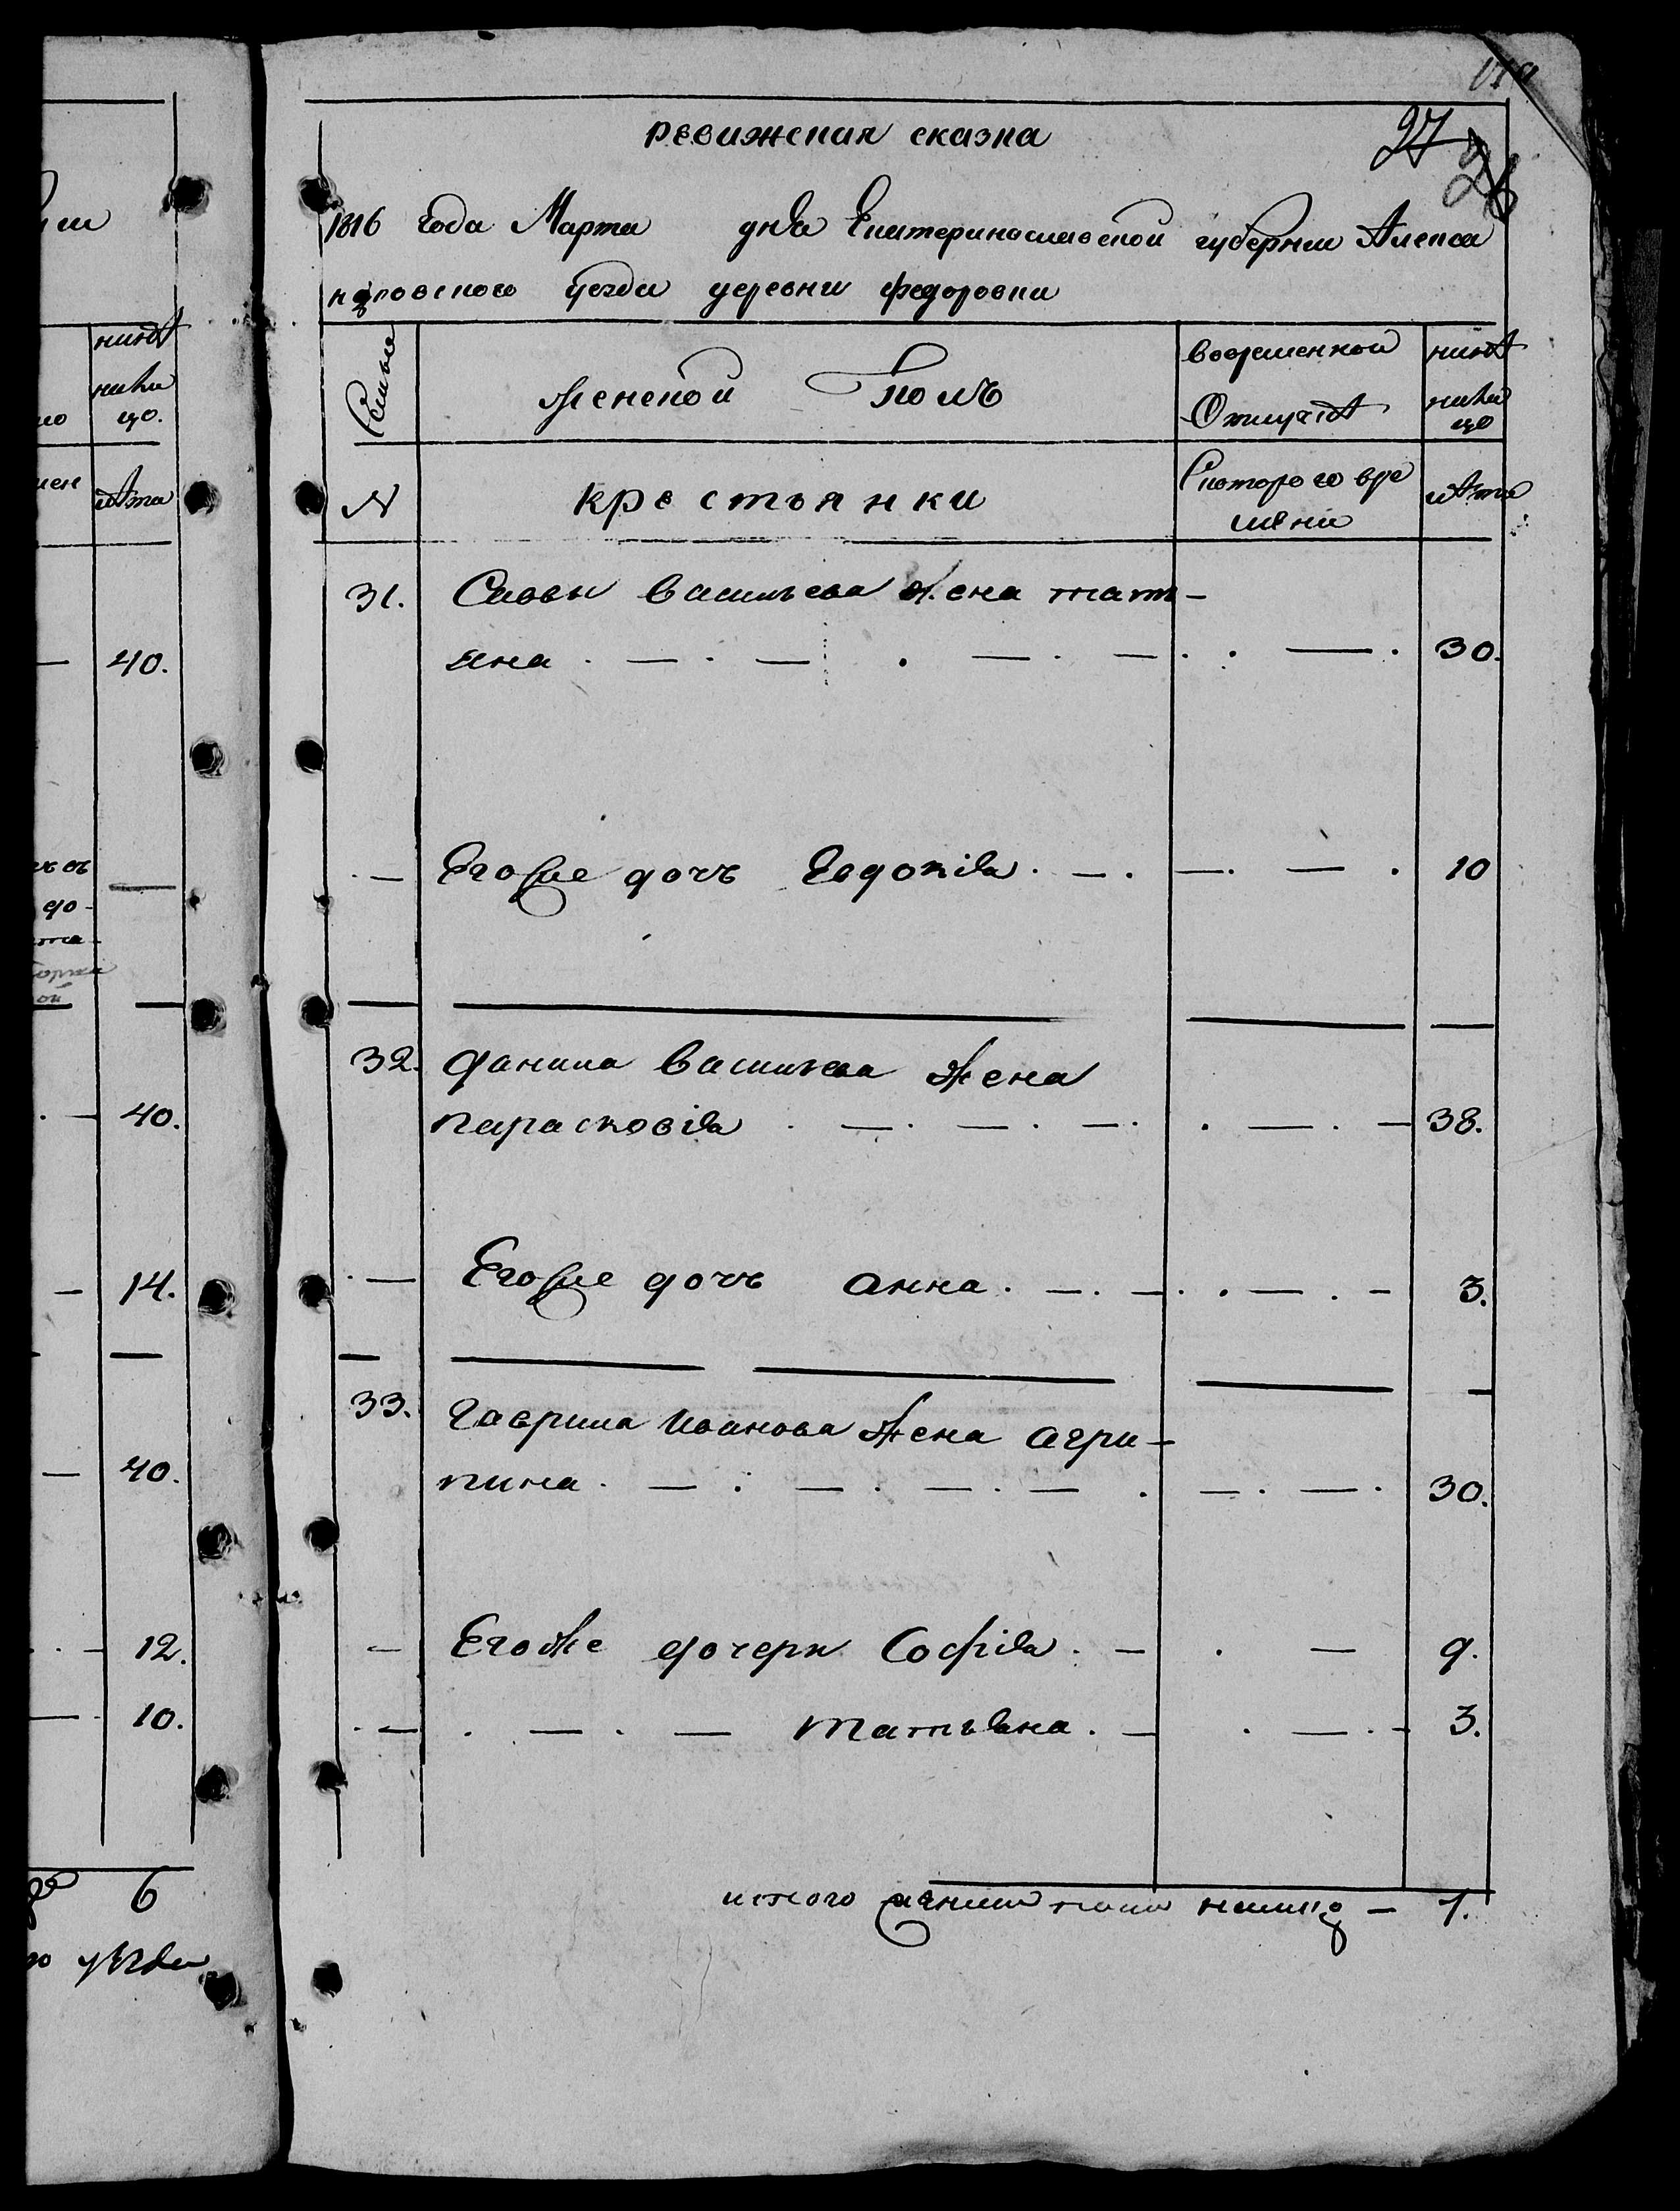 27
ревижская сказка
1816 года Марта дня Екатеринославской губернии Алекса
ндровского уезда деревни федоровки
Семьи
женской Полъ
вовременной
Отлучке
ныне
налицо
№
крестьянки
Скоторого вре
мени
лета
31. Савы васильева жена тать-
яна 30.
Егоже дочъ Евдокия 10
32. данила васильева жена
парасковия 38.
Егоже дочъ анна 3.
33. гаврила иванова жена агри-
пина 30.
Егоже дочери София 9.
татьяна 3.
итого женска полу налицо 7.
40.
40.
14.
40.
12.
10.
6
уезда